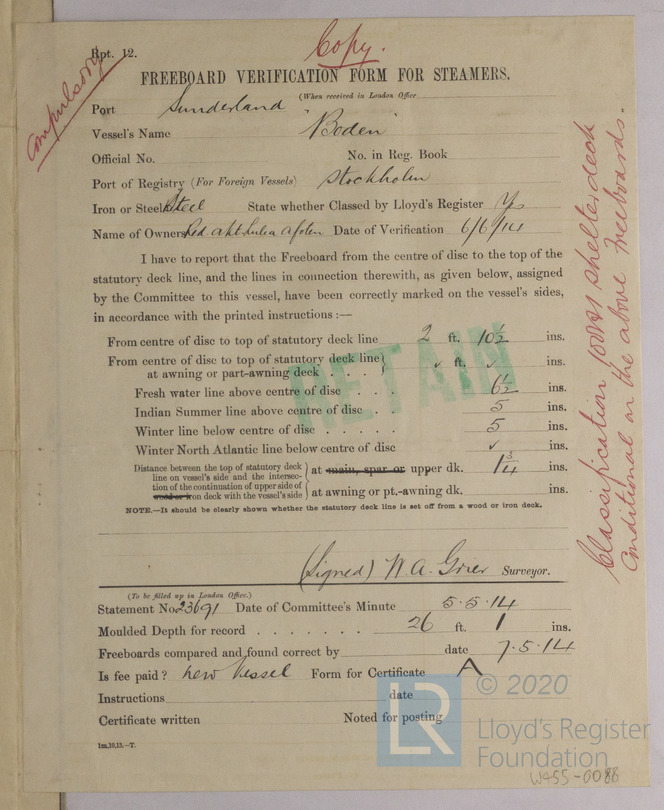 Rpt. 12.
Copy.
Compulsory
FREEBOARD VERIFICATION FORM FOR STEAMERS.
(When received in London Office
Port Sunderland
Vessel's Name "Boden"
Official No. No. in Reg. Book
Port of Registry (For Foreign Vessels) Stockholm
Iron or Steel Steel State whether Classed by Lloyd's Register Yes
Name of Owners Red. Akt. Lulea Ofoten Date of Verification 6/6/14
I have to report that the Freeboard from the centre of disc to the top of the
statutory deck line, and the lines in connection therewith, as given below, assigned
by the Committee to this vessel, have been correctly marked on the vessel's sides,
in accordance with the printed instructions :—
From centre of disc to top of statutory deck line 2 ft. 10½ ins.
From centre of disc to top of statutory deck line
at awning or part-awning deck . . . ✓ ft. ✓ ins.
Fresh water line above centre of disc . . . 6½ ins.
Indian Summer line above centre of disc . 5 ins.
Winter line below centre of disc . . . . . 5 ins.
Winter North Atlantic line below centre of disc ✓ ins.
Distance between the top of statutory deck
line on vessel's side and the intersec-
tion of the continuation of upper side of
wood or iron deck with the vessel's side
at main, spar or upper dk. 1¾ ins.
at awning or pt.-awning dk. ins.
NOTE.—It should be clearly shown whether the statutory deck line is set off from a wood or iron deck.
RETAIN
(Signed) W. A. Grier Surveyor.
(To be filled up in London Office.)
Statement No. 23691 Date of Committee's Minute 5.5.14
Moulded Depth for record . . . . . . . 26 ft. 1 ins.
Freeboards compared and found correct by date 7.5.14
Is fee paid? new Vessel Form for Certificate A
Instructions date
Certificate written Noted for posting
1m,10,13.—T.
Classification 100A1 shelter deck
Conditional on the above Freeboards.
LR
© 2020
Lloyd's Register
Foundation
W455-0088